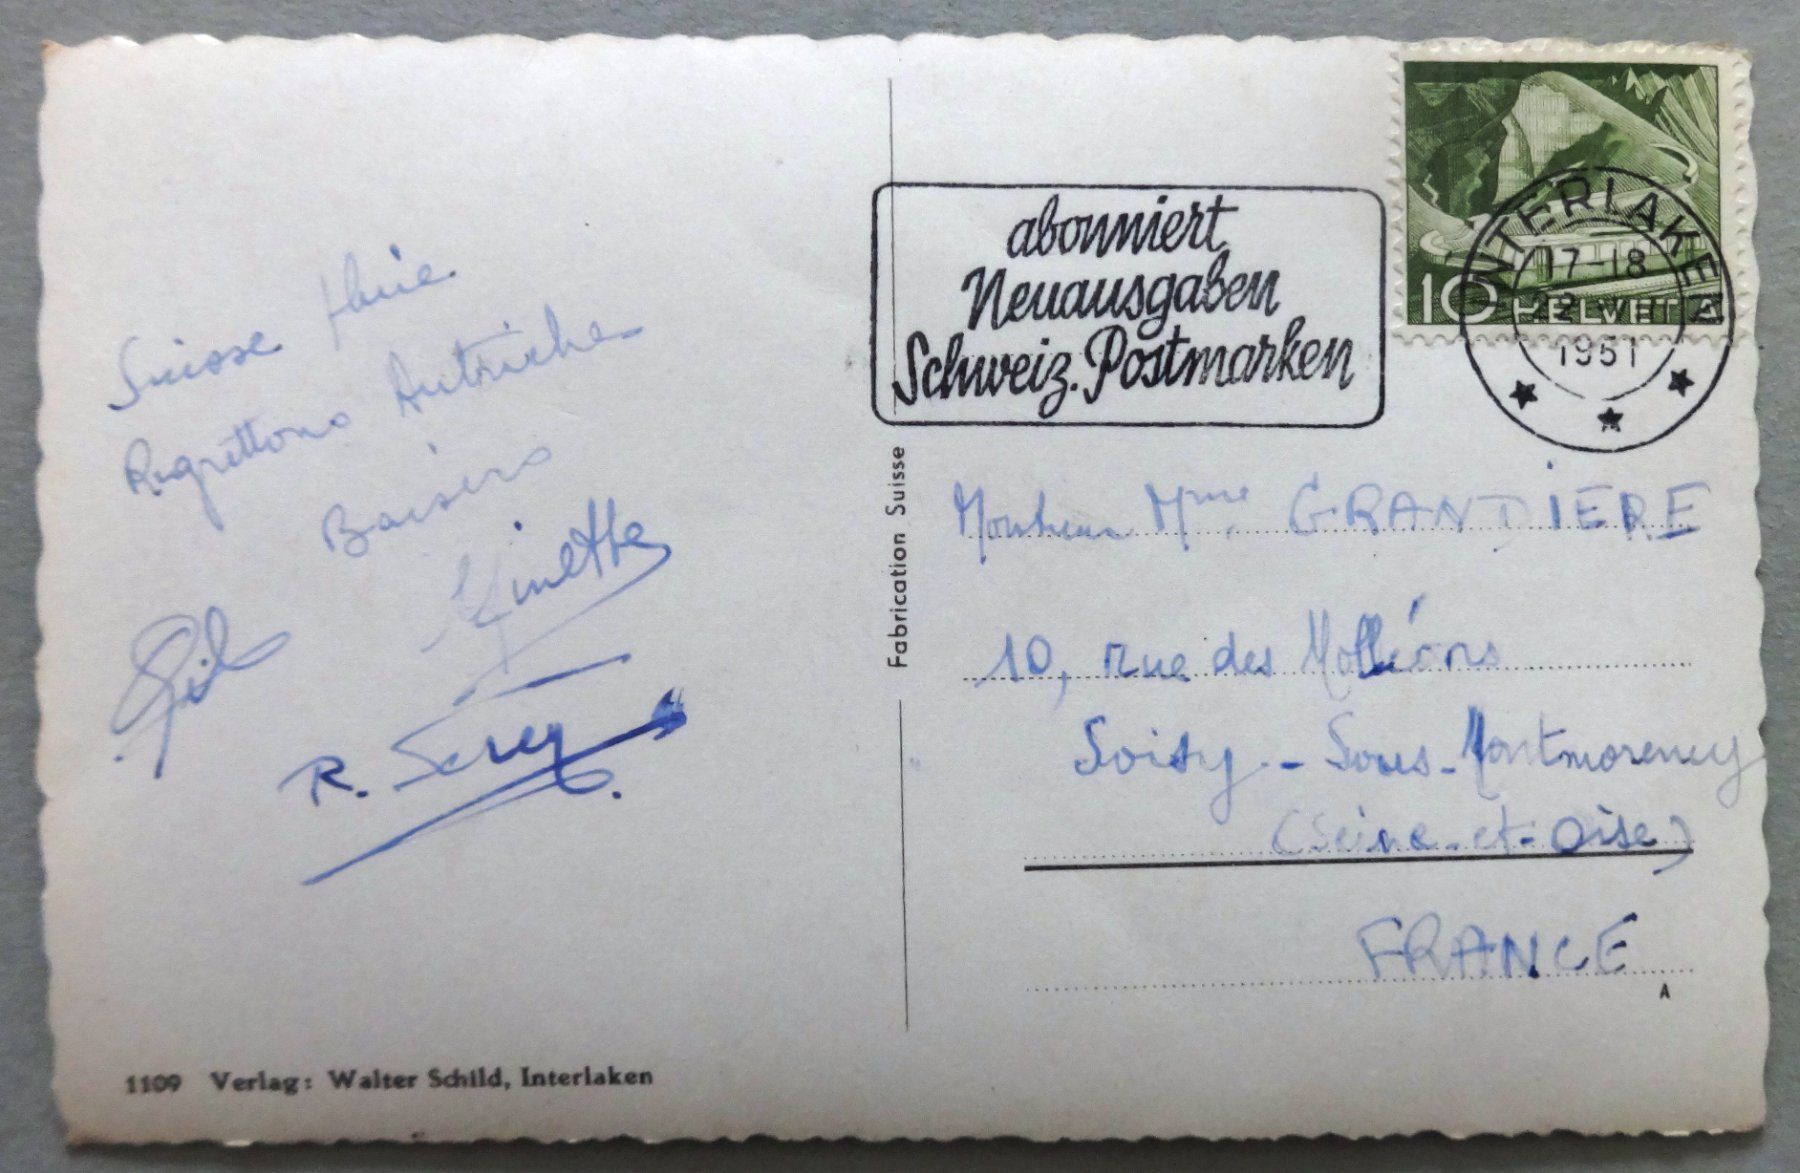 Suisse pluie
Regrettons Autriche
Baisers
Ginette
Gil
R. Serey
1109 Verlag: Walter Schild, Interlaken
Fabrication Suisse
abonniert
Neuausgaben
Schweiz. Postmarken
INTERLAKEN
17-18
22
1951
10 HELVETIA
Monsieur Mme GRANDIERE
10, rue des Molléons
Soisy-Sous-Montmorency
(Seine-et-Oise)
FRANCE
A